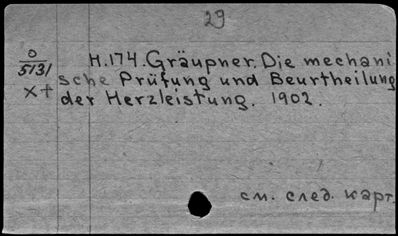 29
О
5131
x+
H.174. Gräupner. Die mechani
sche Prüfung und Beurtheilung
der Herzleistung. 1902.
см. след. карт.